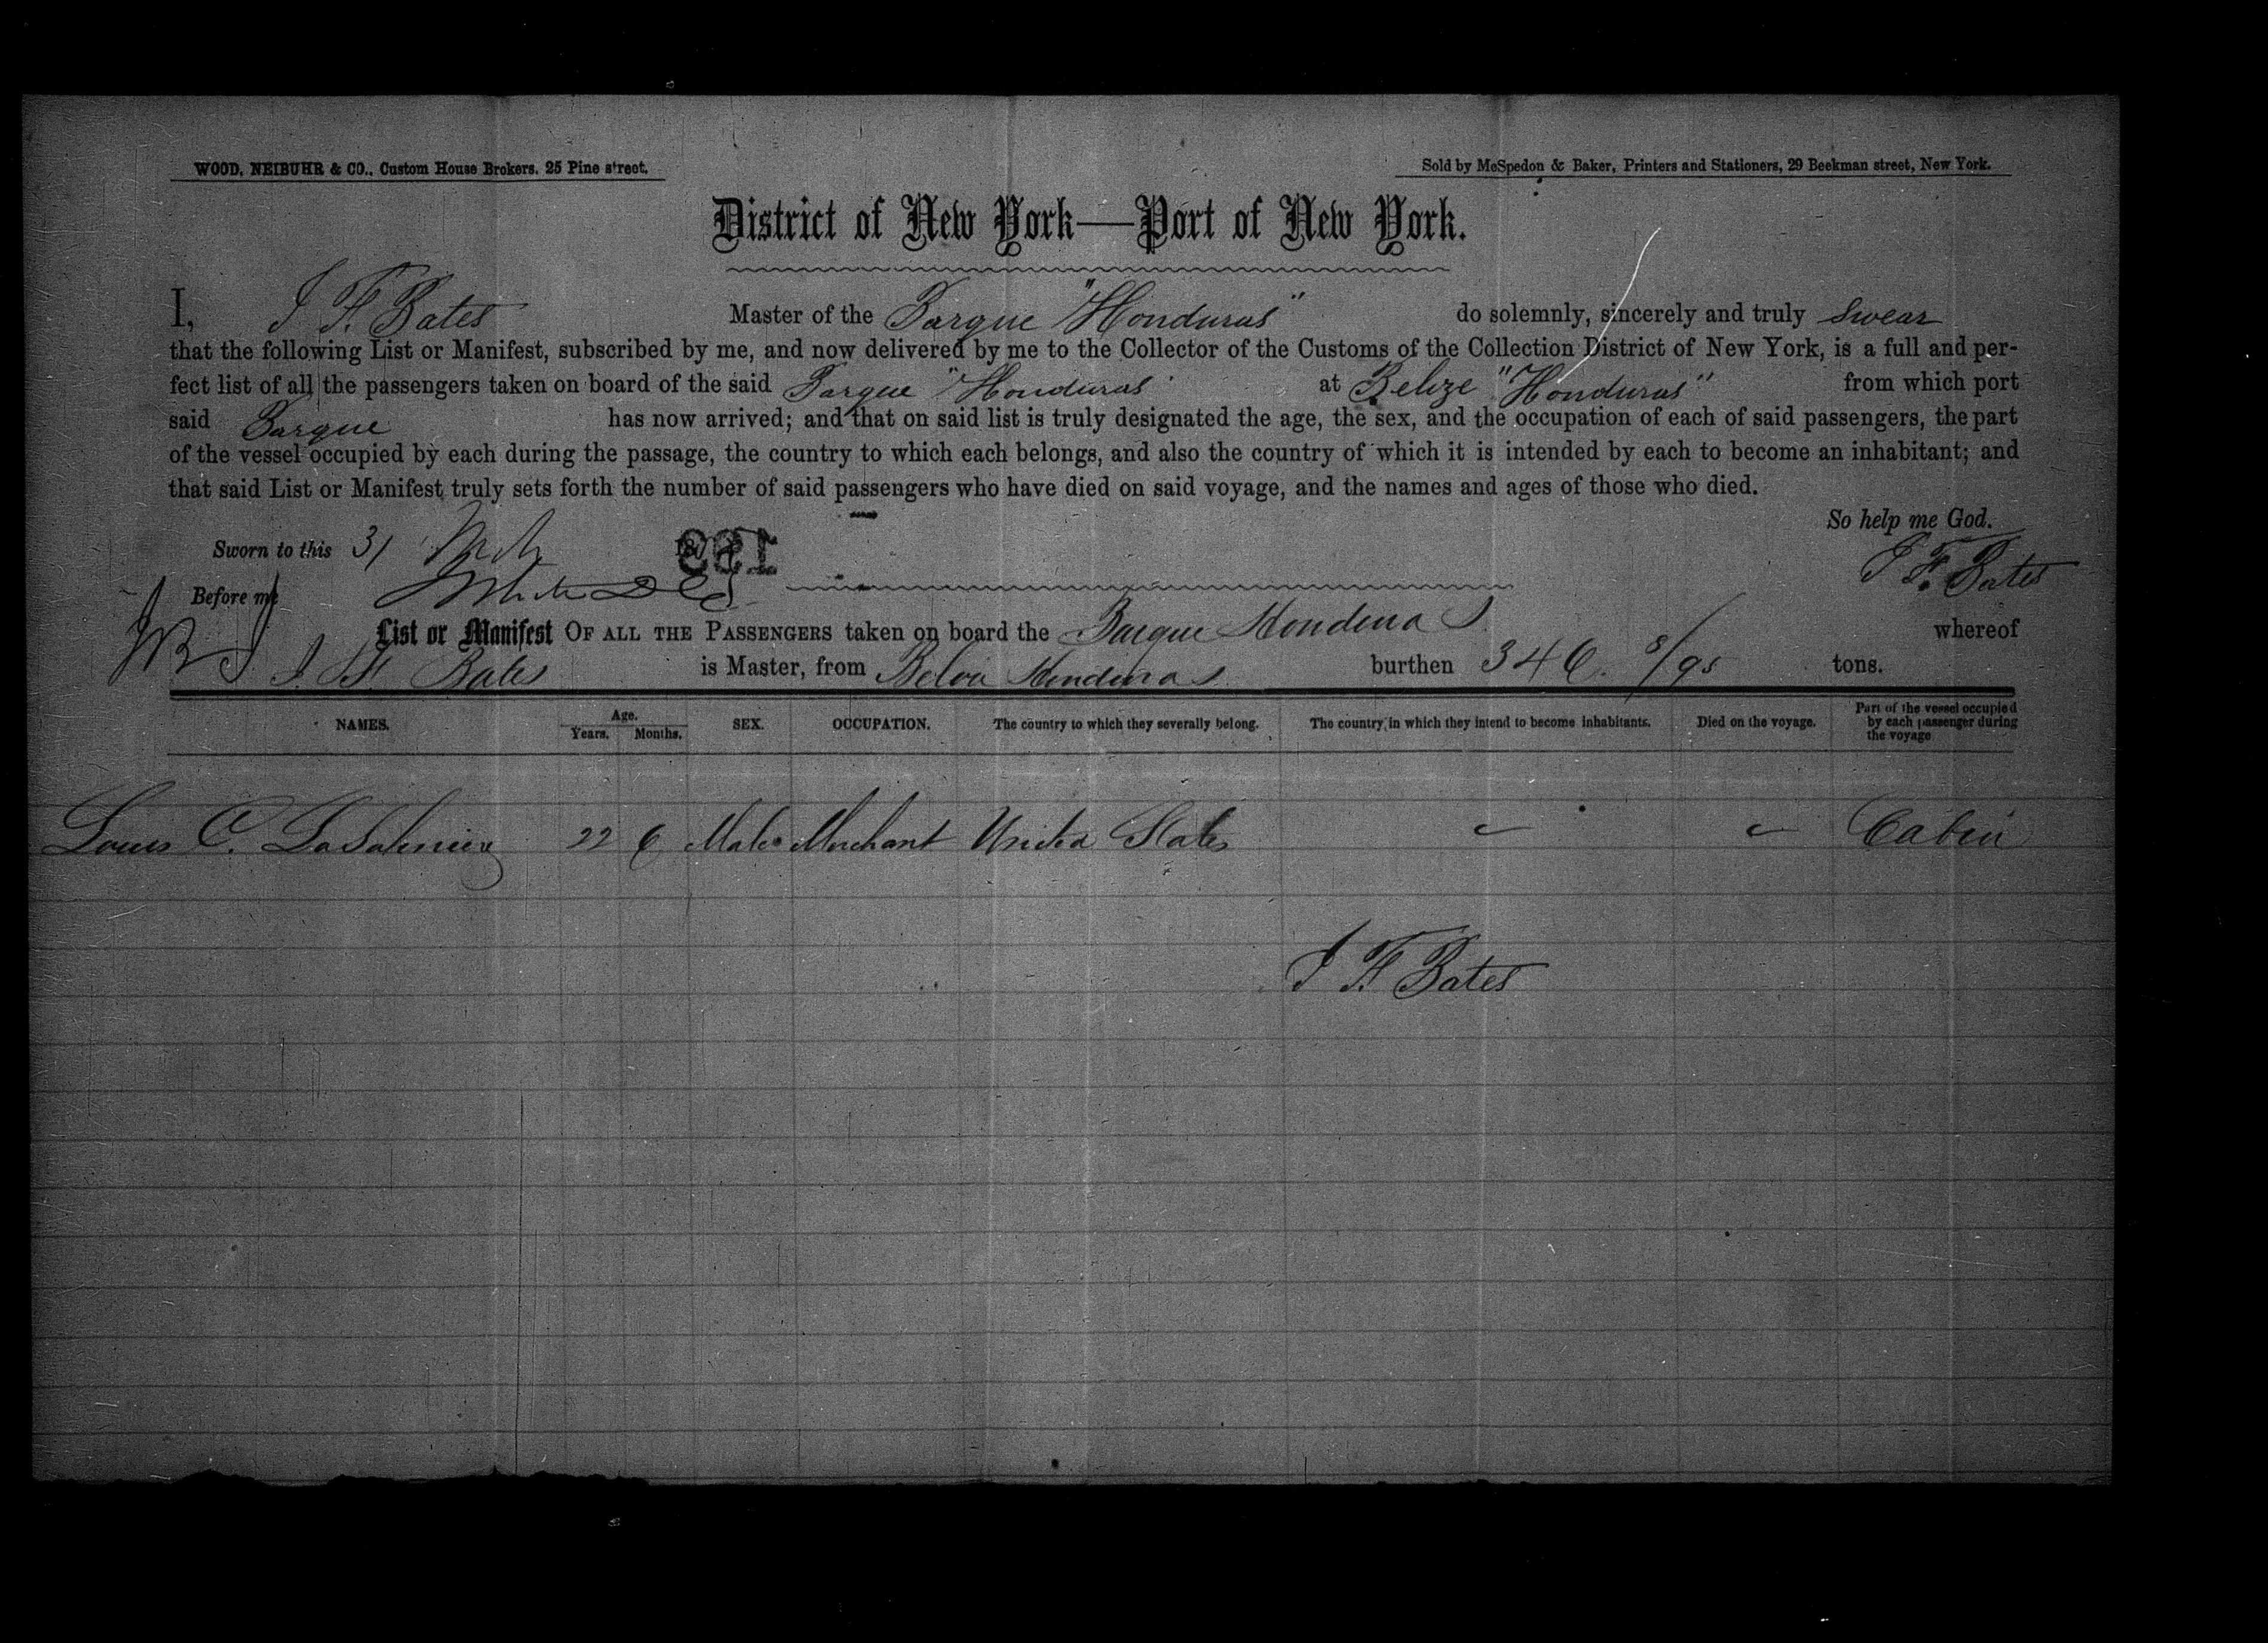 WOOD, NEIBUHR & CO., Custom House Brokers. 25 Pine street.
Sold by McSpedon & Baker, Printers and Stationers, 29 Beekman street, New York.
District of New York—Port of New York.
I, J F. Bates Master of the Barque "Honduras" do solemnly, sincerely and truly swear
that the following List or Manifest, subscribed by me, and now delivered by me to the Collector of the Customs of the Collection District of New York, is a full and per-
fect list of all the passengers taken on board of the said Barque "Honduras" at Belize "Honduras" from which port
said Barque has now arrived; and that on said list is truly designated the age, the sex, and the occupation of each of said passengers, the part
of the vessel occupied by each during the passage, the country to which each belongs, and also the country of which it is intended by each to become an inhabitant; and
that said List or Manifest truly sets forth the number of said passengers who have died on said voyage, and the names and ages of those who died.
So help me God.
Sworn to this 31 Mch
J F. Bates
Before me
List or Manifest OF ALL THE PASSENGERS taken on board the Barque Honduras whereof
J. F. Bates is Master, from Honduras burthen 346. 8/95 tons.
NAMES. Age. Years. Months. SEX. OCCUPATION. The country to which they severally belong. The country in which they intend to become inhabitants. Died on the voyage. Part of the vessel occupied by each passenger during the voyage
Louis C. 22 6 Male Merchant United States Cabin
J F Bates